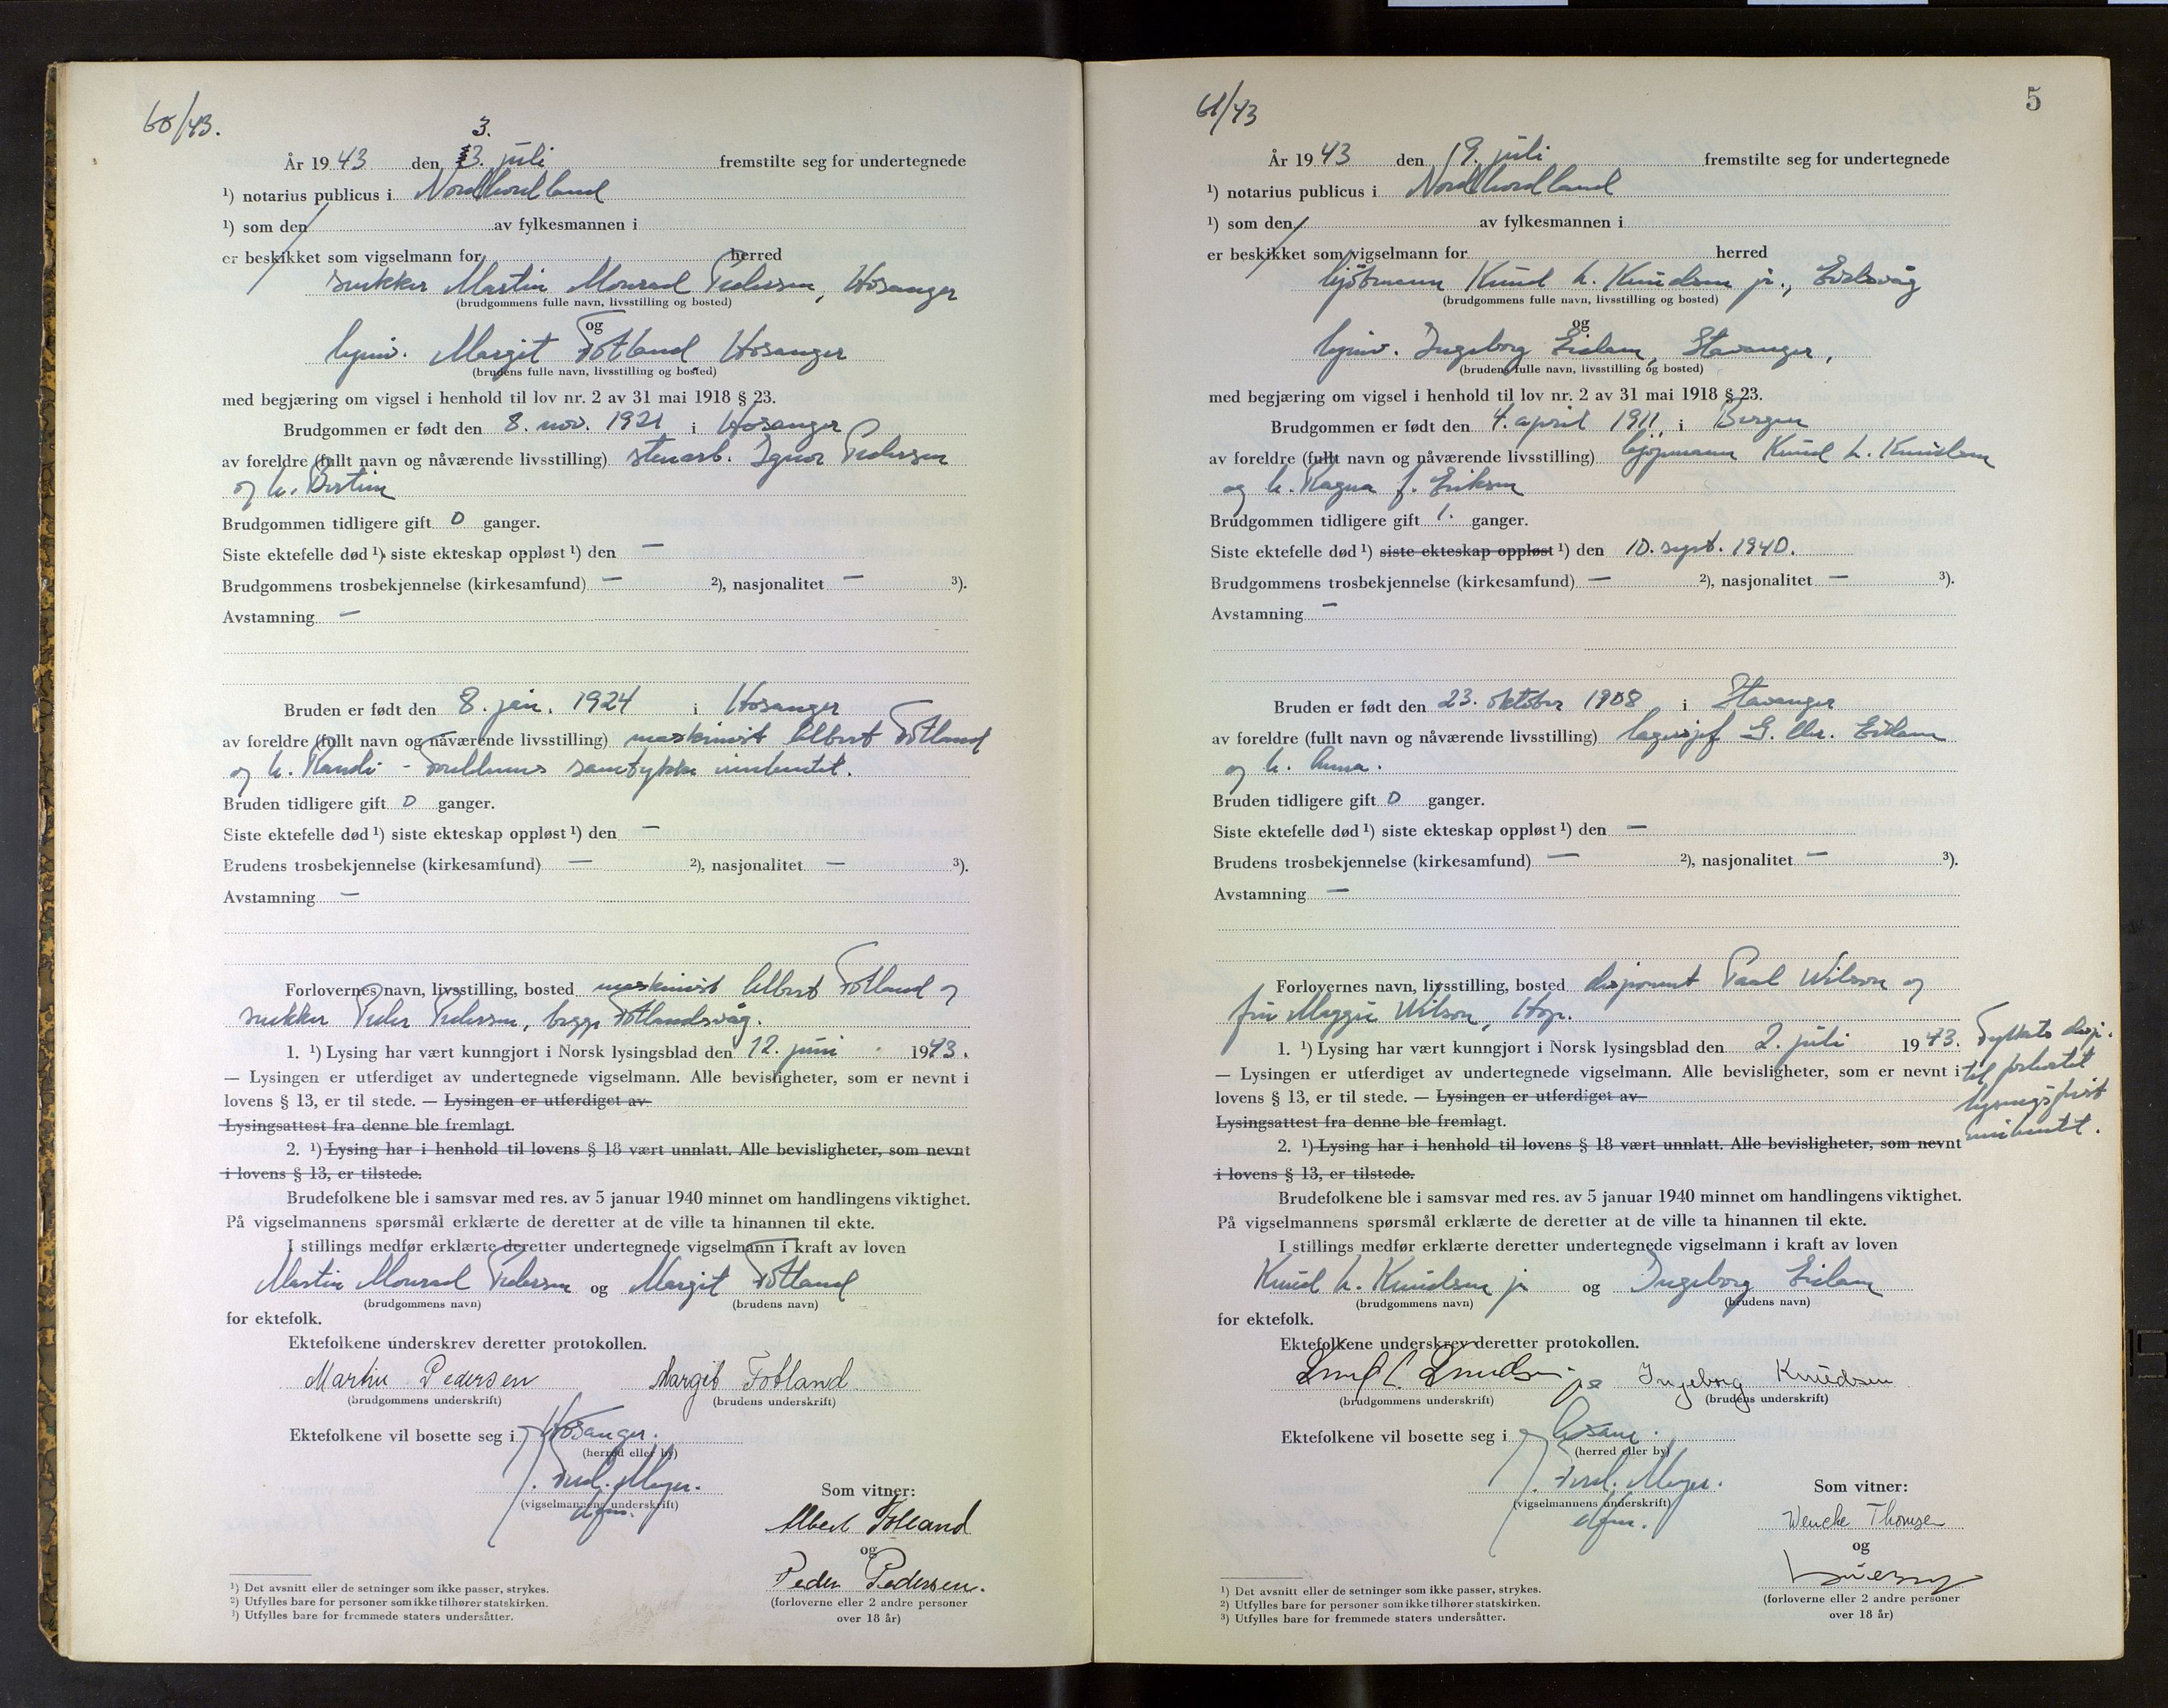 60/43.
3.
År 1943 den 3. juli fremstilte seg for undertegnede
¹) notarius publicus i Nordhordland
¹) som den av fylkesmannen i
er beskikket som vigselmann for herred
snekker Martin Monrad Pedersen, Hosanger
(brudgommens fulle navn, livsstilling og bosted)
og
hjmv. Margit Fotland Hosanger
(brudens fulle navn, livsstilling og bosted)
med begjæring om vigsel i henhold til lov nr. 2 av 31 mai 1918 § 23.
Brudgommen er født den 8. nov. 1921 i Hosanger
av foreldre (fullt navn og nåværende livsstilling) stenarb. Pedersen
og h.
Brudgommen tidligere gift 0 ganger.
Siste ektefelle død ¹) siste ekteskap oppløst ¹) den —
Brudgommens trosbekjennelse (kirkesamfund) — ²), nasjonalitet — ³).
Avstamning —
Bruden er født den 8. jan. 1924 i Hosanger
av foreldre (fullt navn og nåværende livsstilling) maskinist Albert Fotland
og h. Randi - foreldrenes samtykke innhentet.
Bruden tidligere gift 0 ganger.
Siste ektefelle død ¹) siste ekteskap oppløst ¹) den —
Brudens trosbekjennelse (kirkesamfund) — ²), nasjonalitet — ³).
Avstamning —
Forlovernes navn, livsstilling, bosted maskinist Albert Fotland og
snekker Peder Pedersen, begge Fotlandsvåg.
1. ¹) Lysing har vært kunngjort i Norsk lysingsblad den 12. juni 1943.
— Lysingen er utferdiget av undertegnede vigselmann. Alle bevisligheter, som er nevnt i
lovens § 13, er til stede. — Lysingen er utferdiget av
Lysingsattest fra denne ble fremlagt.
2. ¹) Lysing har i henhold til lovens § 18 vært unnlatt. Alle bevisligheter, som nevnt
i lovens § 13, er tilstede.
Brudefolkene ble i samsvar med res. av 5 januar 1940 minnet om handlingens viktighet.
På vigselmannens spørsmål erklærte de deretter at de ville ta hinannen til ekte.
I stillings medfør erklærte deretter undertegnede vigselmann i kraft av loven
Martin Monrad Pedersen og Margit Fotland
(brudgommens navn) (brudens navn)
for ektefolk.
Ektefolkene underskrev deretter protokollen.
Martin Pedersen Margit Fotland
(brudgommens underskrift) (brudens underskrift)
Ektefolkene vil bosette seg i Hosanger.
(herred eller by)
Fred. Meyer.
(vigselmannens underskrift)
dfm.
Som vitner:
Albert Fotland
og
Peder Pedersen.
(forloverne eller 2 andre personer
over 18 år)
¹) Det avsnitt eller de setninger som ikke passer, strykes.
²) Utfylles bare for personer som ikke tilhører statskirken.
³) Utfylles bare for fremmede staters undersåtter.
61/43
5
År 1943 den 19. juli fremstilte seg for undertegnede
¹) notarius publicus i Nordhordland
¹) som den av fylkesmannen i
er beskikket som vigselmann for herred
kjøbmann Knud L. Knudsen jr., Eidsvåg
(brudgommens fulle navn, livsstilling og bosted)
og
hjmv. Ingeborg Eielsen, Stavanger,
(brudens fulle navn, livsstilling og bosted)
med begjæring om vigsel i henhold til lov nr. 2 av 31 mai 1918 § 23.
Brudgommen er født den 4. april 1911, i Bergen
av foreldre (fullt navn og nåværende livsstilling) kjøpmann Knud L. Knudsen
og h. Ragna f. Eriksen
Brudgommen tidligere gift 1. ganger.
Siste ektefelle død ¹) siste ekteskap oppløst ¹) den 10. sept. 1940.
Brudgommens trosbekjennelse (kirkesamfund) — ²), nasjonalitet — ³).
Avstamning —
Bruden er født den 23. oktober 1908 i Stavanger
av foreldre (fullt navn og nåværende livsstilling) lagersjef G. Chr. Eielsen
og h. Anna.
Bruden tidligere gift 0 ganger.
Siste ektefelle død ¹) siste ekteskap oppløst ¹) den —
Brudens trosbekjennelse (kirkesamfund) — ²), nasjonalitet — ³).
Avstamning —
Forlovernes navn, livsstilling, bosted disponent Paal Wilson og
fru Maggie Wilson, Hop.
1. ¹) Lysing har vært kunngjort i Norsk lysingsblad den 2. juli 1943.
Fylkets disp.
til forkortet
lysingsfrist
innhentet.
— Lysingen er utferdiget av undertegnede vigselmann. Alle bevisligheter, som er nevnt i
lovens § 13, er til stede. — Lysingen er utferdiget av
Lysingsattest fra denne ble fremlagt.
2. ¹) Lysing har i henhold til lovens § 18 vært unnlatt. Alle bevisligheter, som nevnt
i lovens § 13, er tilstede.
Brudefolkene ble i samsvar med res. av 5 januar 1940 minnet om handlingens viktighet.
På vigselmannens spørsmål erklærte de deretter at de ville ta hinannen til ekte.
I stillings medfør erklærte deretter undertegnede vigselmann i kraft av loven
Knud L. Knudsen jr og Ingeborg Eielsen
(brudgommens navn) (brudens navn)
for ektefolk.
Ektefolkene underskrev deretter protokollen.
Knud L. Knudsen jr Ingeborg Knudsen
(brudgommens underskrift) (brudens underskrift)
Ektefolkene vil bosette seg i Åsane.
(herred eller by)
Fred. Meyer.
(vigselmannens underskrift)
dfm.
Som vitner:
Wencke Thomsen
og
(forloverne eller 2 andre personer
over 18 år)
¹) Det avsnitt eller de setninger som ikke passer, strykes.
²) Utfylles bare for personer som ikke tilhører statskirken.
³) Utfylles bare for fremmede staters undersåtter.